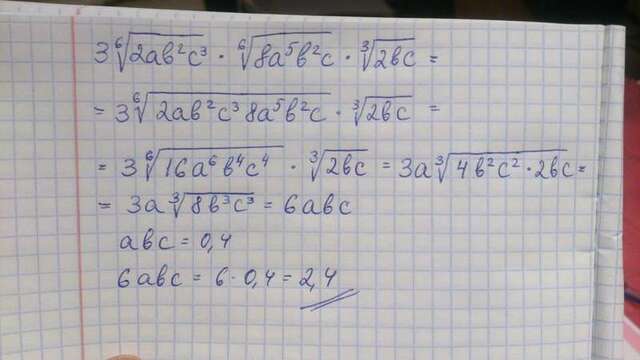 3⁶√(2ab²c³) · ⁶√(8a⁵b²c) · ³√(2bc) =
= 3⁶√(2ab²c³8a⁵b²c) · ³√(2bc) =
= 3⁶√(16a⁶b⁴c⁴) · ³√(2bc) = 3a³√(4b²c² · 2bc) =
= 3a³√(8b³c³) = 6abc
abc = 0,4
6abc = 6 · 0,4 = 2,4